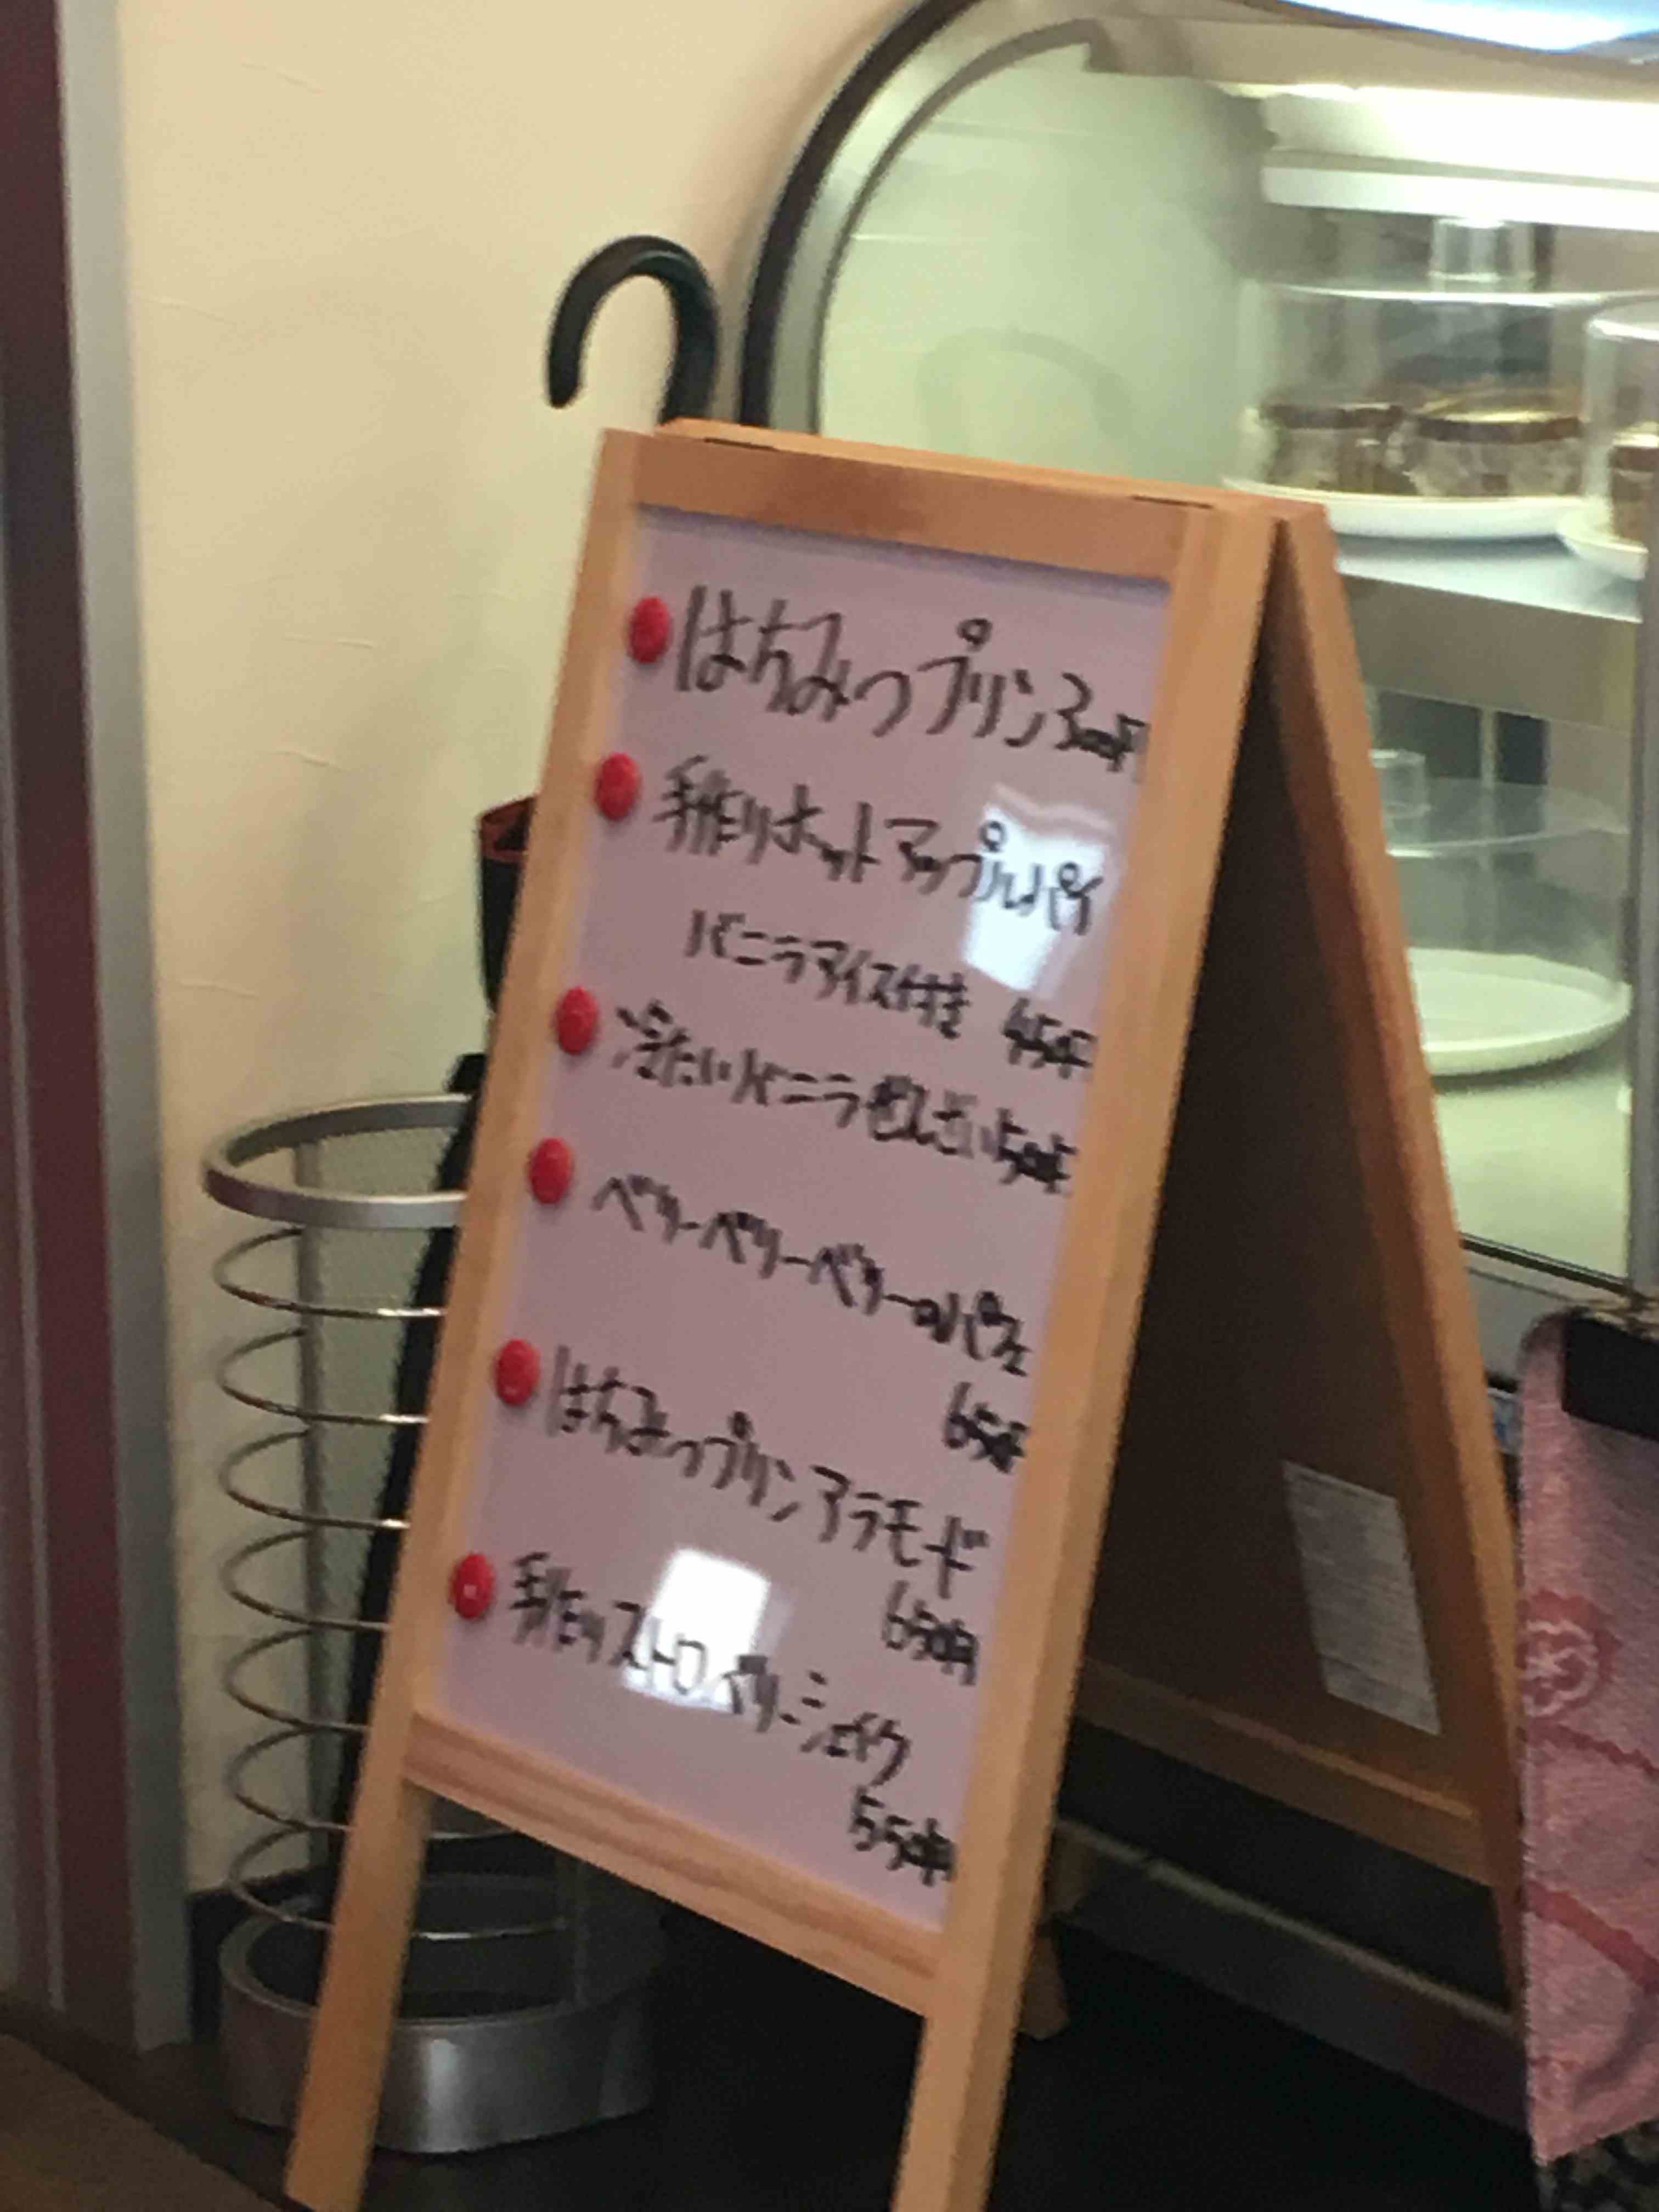 はちみつプリン300円
手作りホットアップルパイ
バニラアイス付き 450円
冷たいバニラぜんざい500円
ベリーベリーベリーのパフェ
650円
はちみつプリンアラモード
650円
手作りストロベリーシェイク
550円